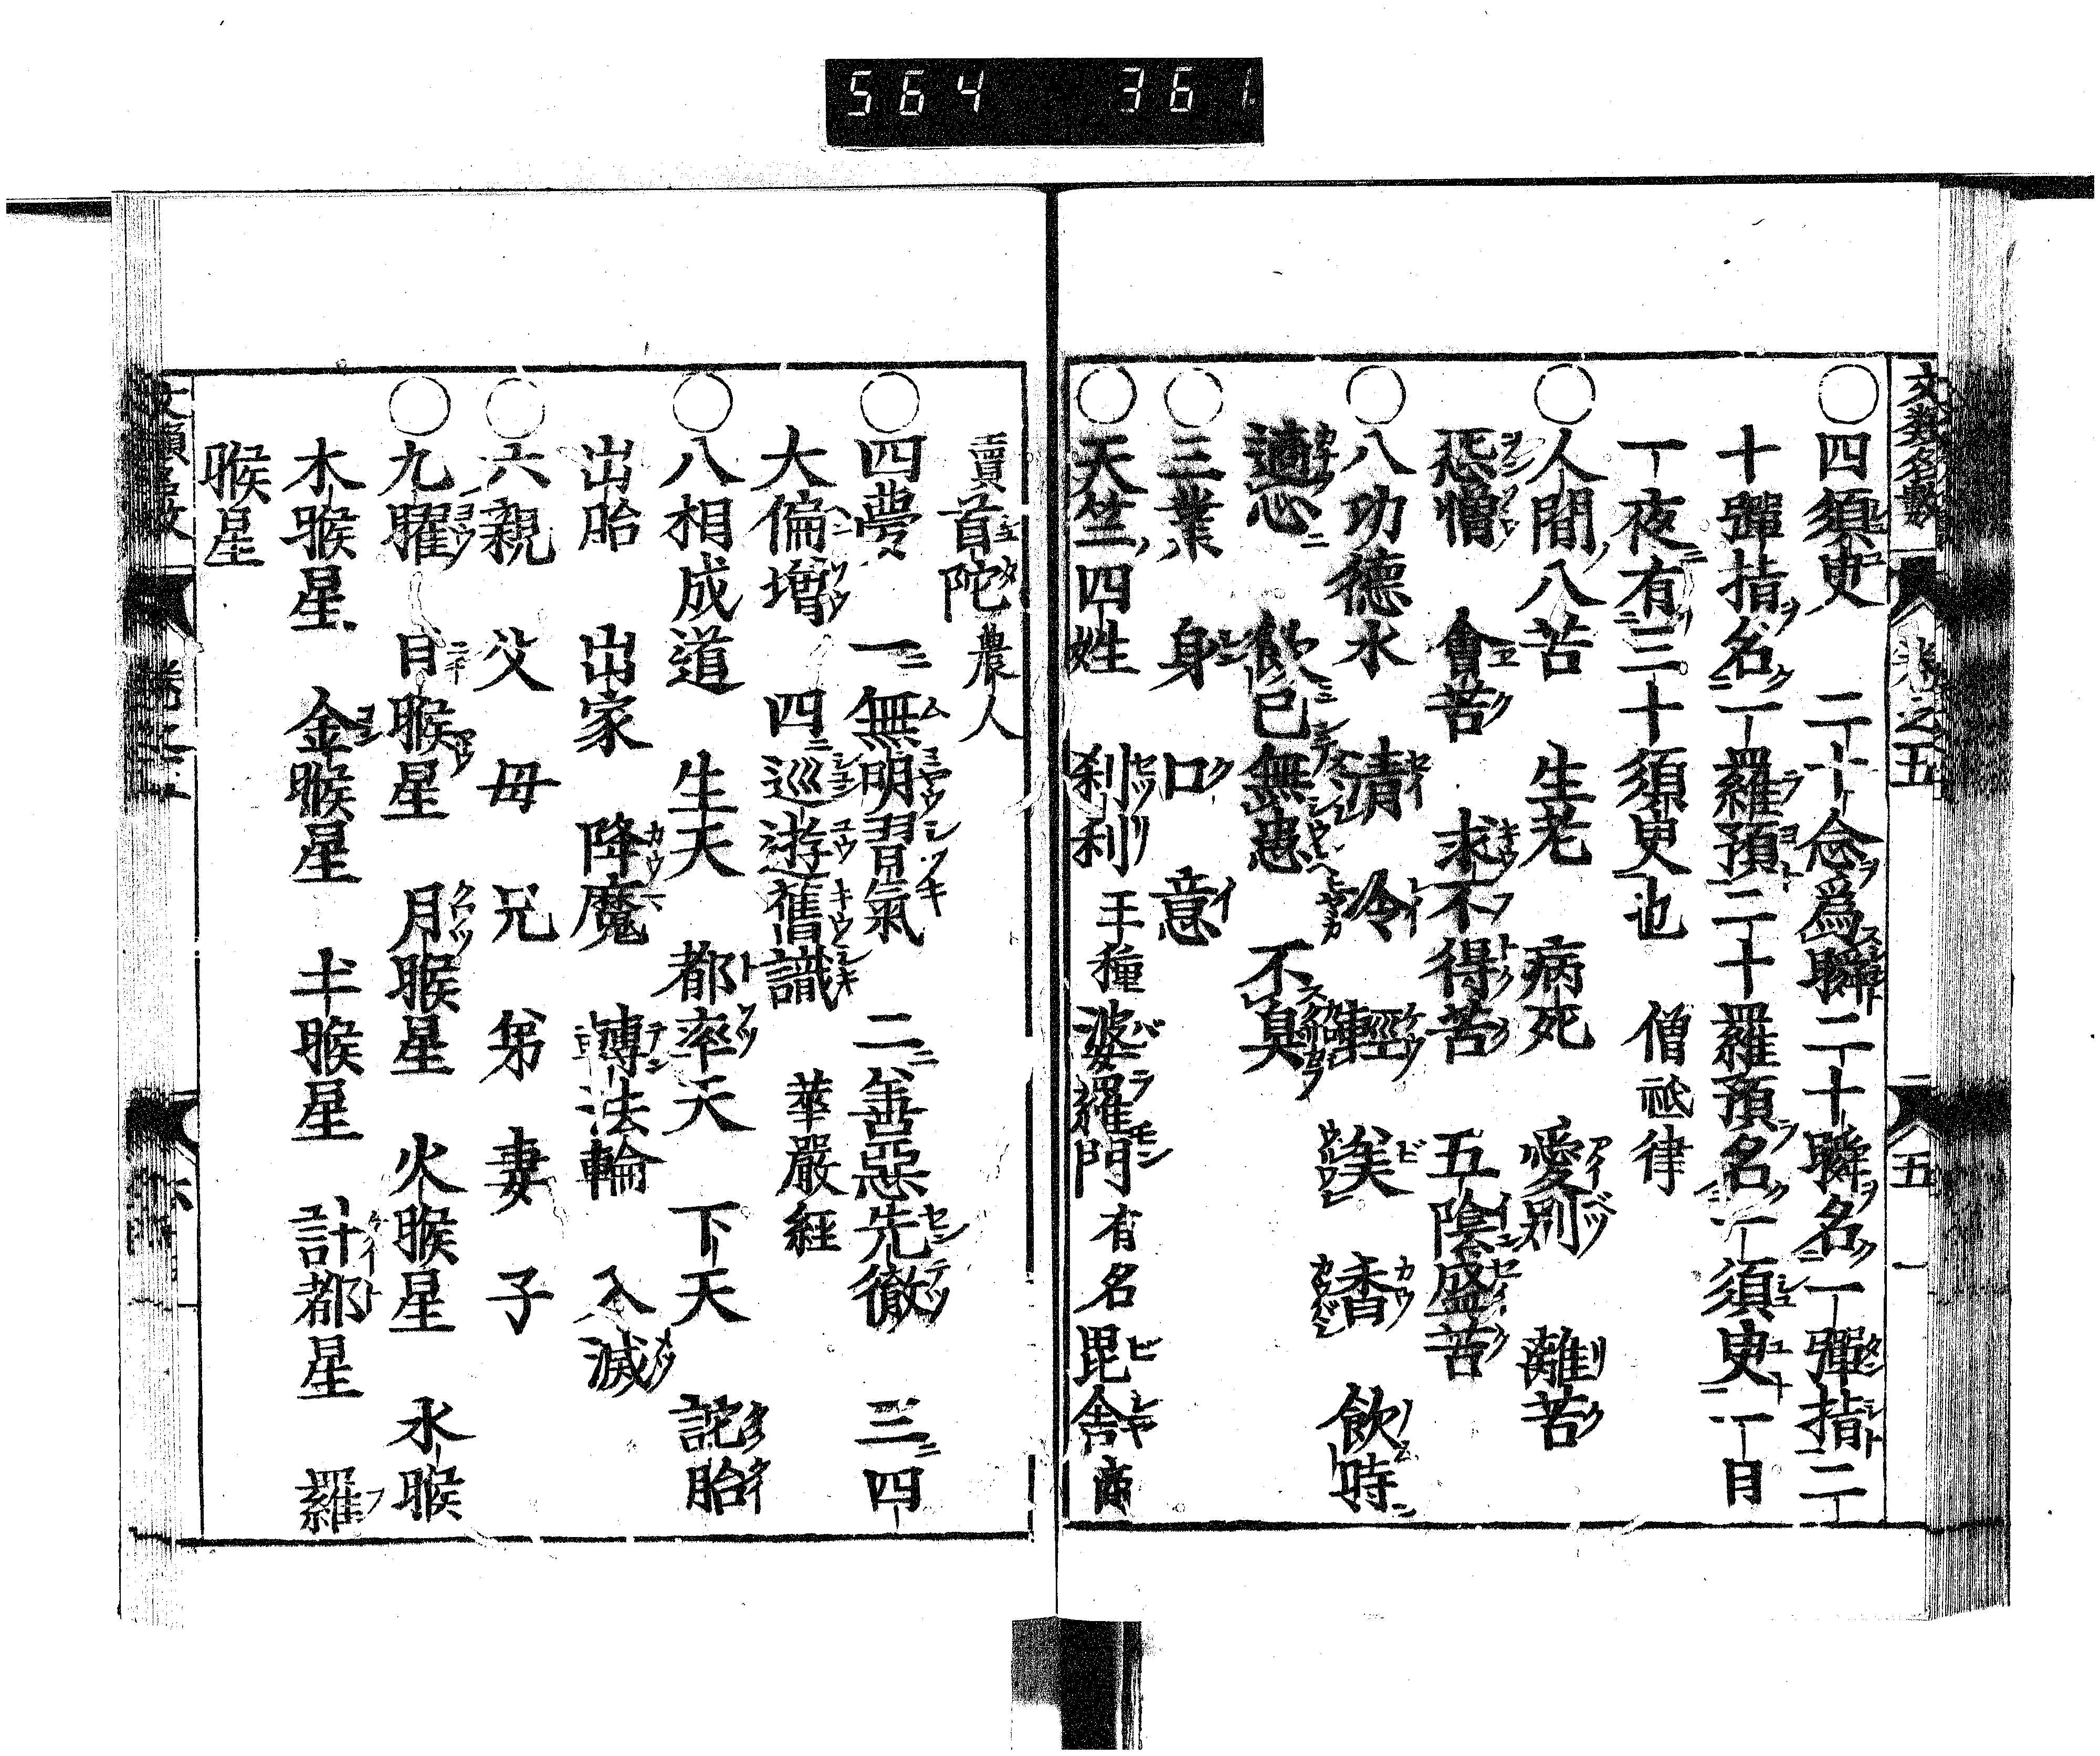 564 361
文類名數 卷之五 五 一
○四須臾 二十念爲瞬二十瞬名一彈指二
十彈指名一羅預二十羅預名一須臾一日
一夜有三十須臾也 僧祇律
○人間八苦 生老 病死 愛別 離苦
怨憎 會苦 求不得苦 五陰盛苦
○八功德水 清 冷 輕 美 香 飲時
適心 飲已無患 不臭
○三業 身 口 意
○天竺四姓 刹利 王種 婆羅門 有名 毘舍 商
賣首陀 農人
○四夢 一無明習氣 二善惡先徴 三四
大偏增 四巡遊舊識 華嚴經
○八相成道 生天 都率天 下天 託胎
出胎 出家 降魔 轉法輪 入滅
○六親 父 母 兄 弟 妻 子
○九曜 日睺星 月睺星 火睺星 水睺
木睺星 金睺星 土睺星 計都星 羅
睺星